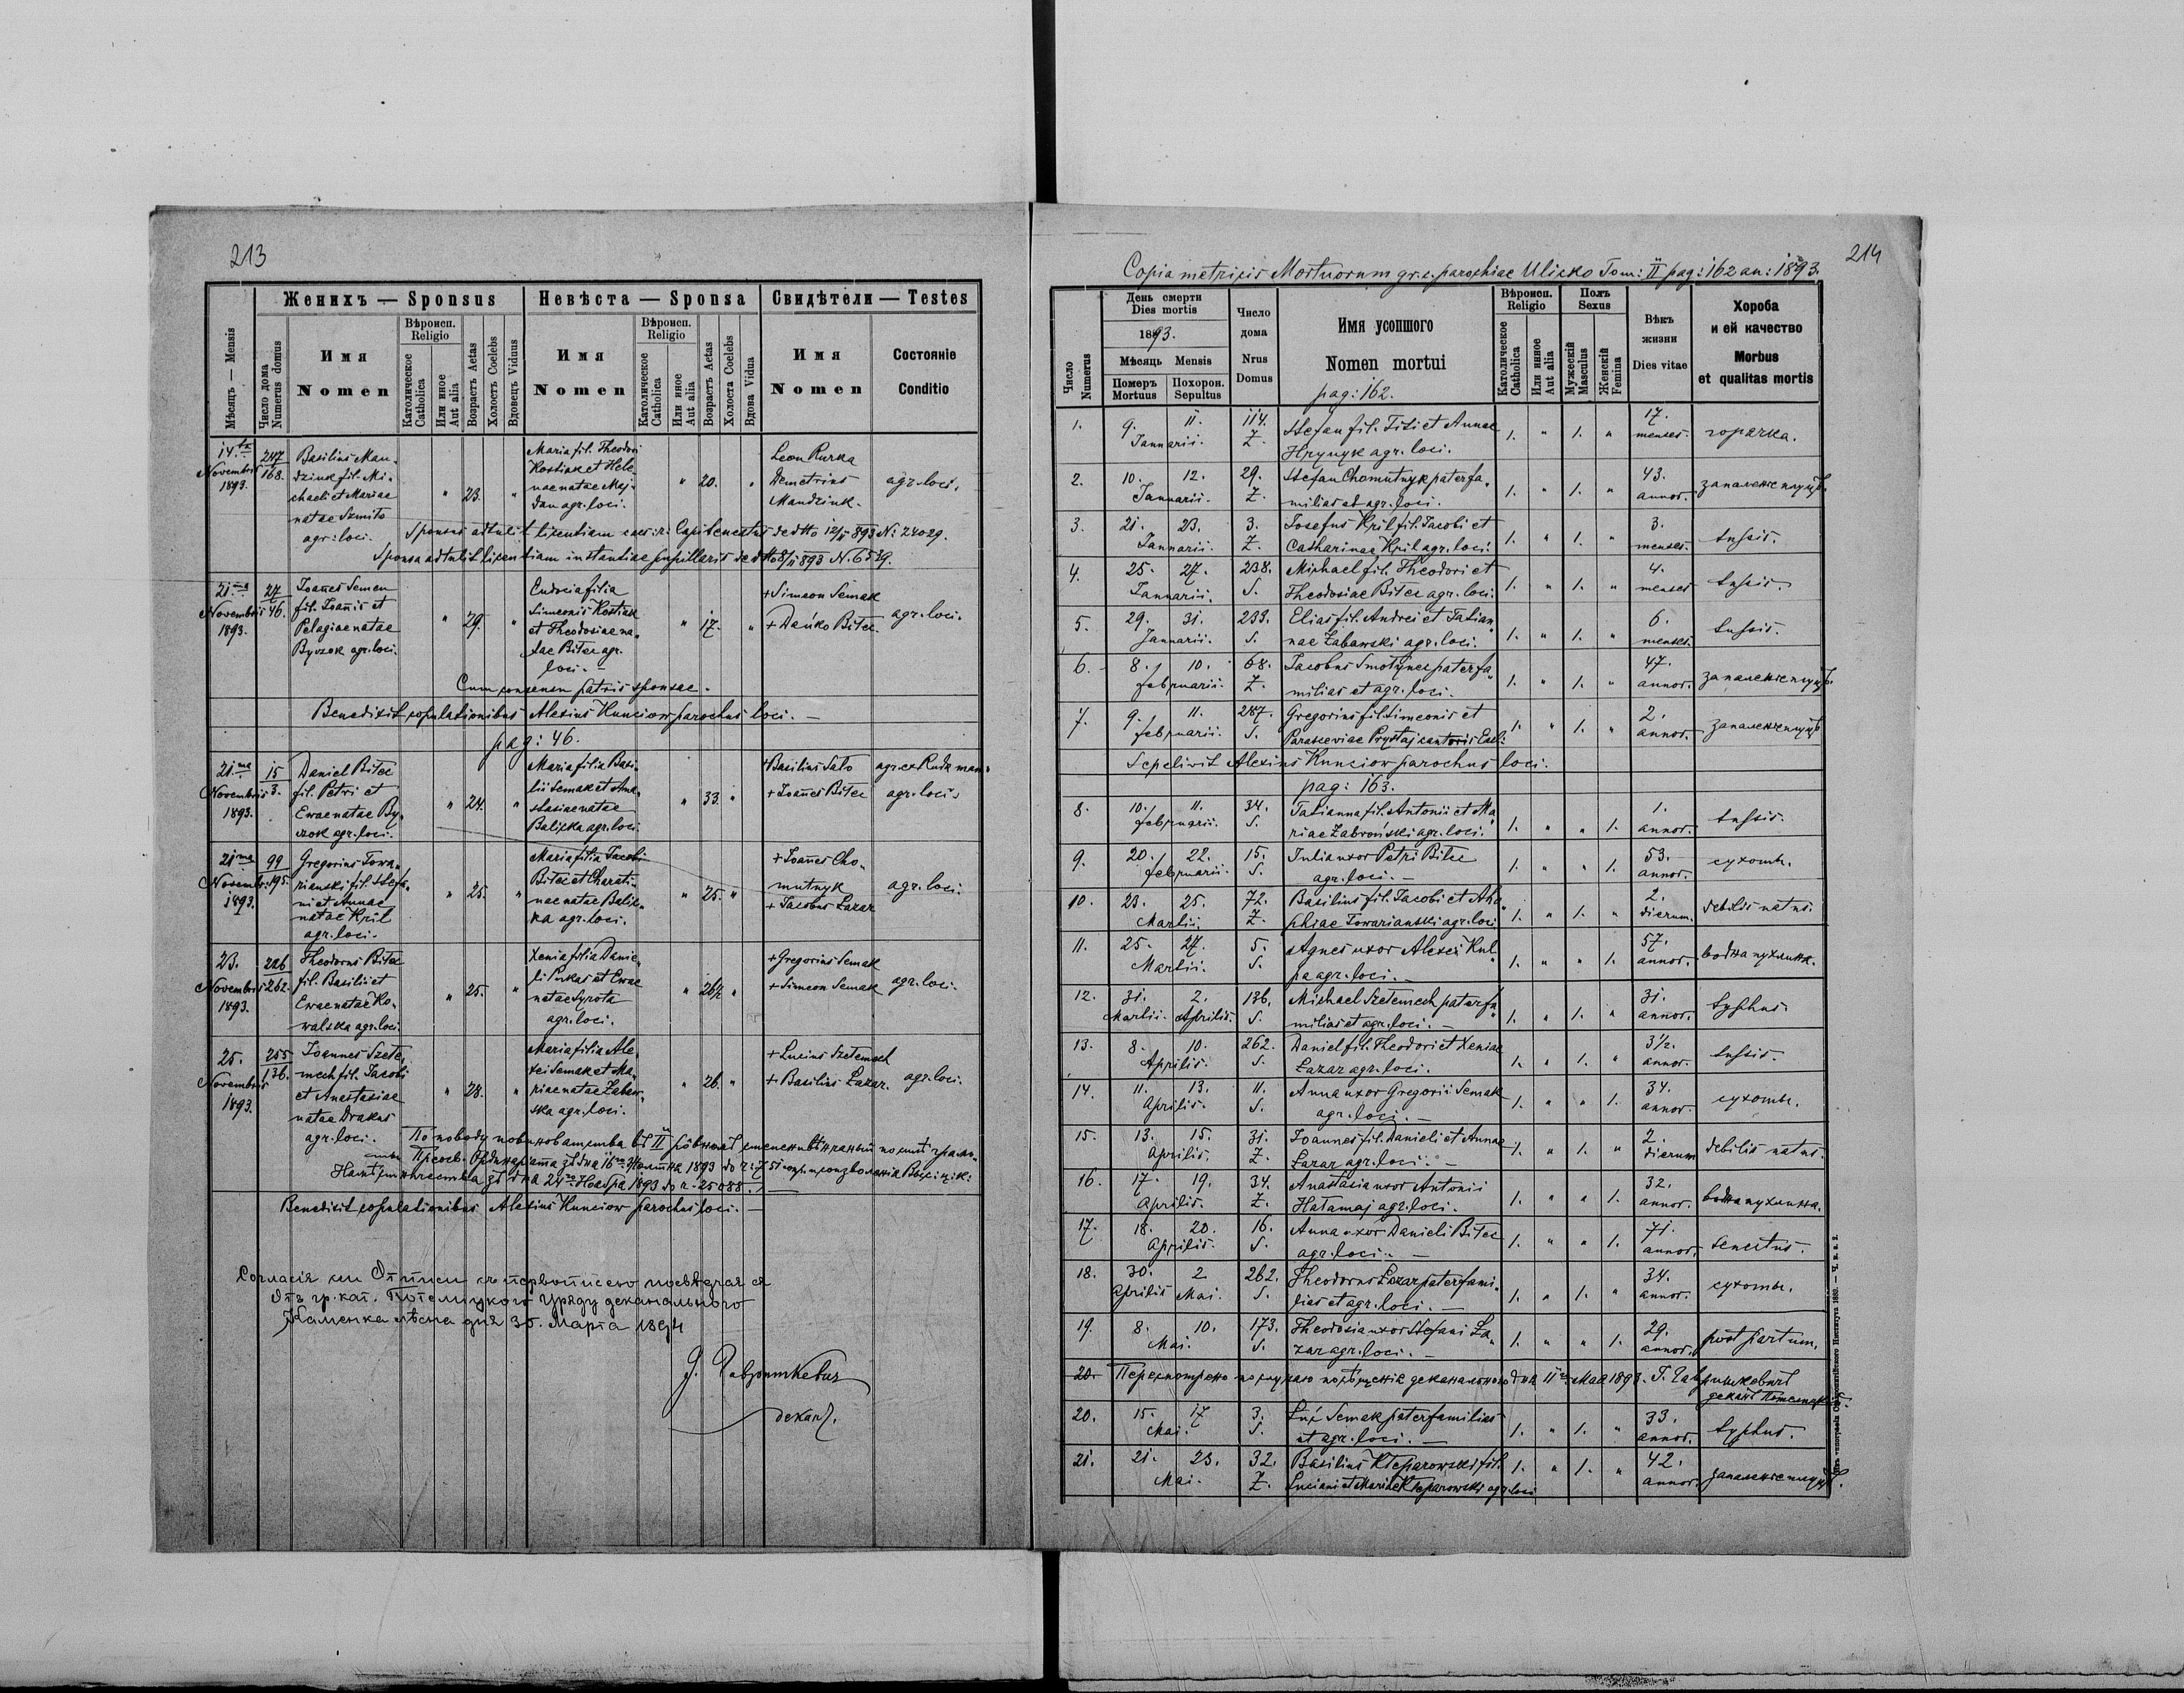 213
Женихъ — Sponsus
Невѣста — Sponsa
Свидѣтели — Testes
Мѣсяць — Mensis
Число дома
Numerus domus
Имя
Nomen
Вѣроисп.
Religio
Католическое
Catholica
Или инное
Aut alia
Возрастъ Aetas
Холостъ Coelebs
Вдовецъ Viduus
Имя
Nomen
Вѣроисп.
Religio
Католическое
Catholica
Или инное
Aut alia
Возрастъ Aetas
Холоста Coelebs
Вдова Vidua
Имя
Nomen
Состоянiе
Conditio
14.ta
Novembris
1893.
247
168.
Basilius Man-
dziuk fil. Mi-
chaeli et Mariae
natae Szmito
agr: loci.
" 23. "
Maria fil. Theodori
Kostiak et Hele-
nae natae Maj-
dan agr. loci.
" 20. "
Leon Rurka
Demetrius
Mandziuk.
agr. loci.
Sponsus adtulit licentiam Capitaneatus de dtto 12/ 893 N: 24029.
Sponsa adtulit licentiam instantiae pupillaris de dtto 8/11 893 N. 6539.
21.ma
Novembris
1893.
27
46.
Joannes Semen
fil. Joannis et
Pelagiae natae
Byczok agr. loci.
" 29. "
Eudocia filia
Simeonis Kostiak
et Theodosiae na-
tae Bitec agr.
loci. —
" 17. "
+ Simeon Semak
+ Dańko Bitec.
agr. loci.
Cum consensu patris sponsae.
Benedixit copulationibus Alexius Kunciow parochus loci. —
pag: 46.
21.ma
Novembris
1893.
15
3.
Daniel Bitec
fil. Petri et
Ewae natae By-
czok agr. loci.
" 24. "
Maria filia Basi-
lii Semak et Ana-
stasiae natae
Balicka agr. loci
" 33. "
+ Basilius Sato
+ Joannes Bitec
agr. ex Ruda man.
agr. loci.
21ma
Novembr.
1893.
99
195.
Gregorius Towa-
rianski fil. Stefa-
ni et Annae
natae Kril
agr. loci.
" 25. "
Maria filia Jacobi
Bitec et Charati-
nae natae Balic-
ka agr. loci.
" 25. "
+ Joannes Cho-
mutnyk
+ Jacobus Lazar
agr. loci.
23.
Novembris
1893.
226
262.
Theodorus Bitec
fil. Basilii et
Ewae natae Ko-
walska agr. loci.
" 25. "
Xenia filia Danie-
li et Ewae
natae Syrota
agr. loci.
" 26½ "
+ Gregorius Semak
+ Simeon Semak
agr. loci.
25.
Novembris
1893.
255
136.
Joannes Szete-
mech fil. Jacobi
et Anastasiae
natae Drakus
agr. loci.
" 28. "
Maria filia Ale-
xei Semak et Ma-
riae natae Zabaw-
ska agr. loci.
" 26. "
+ Lucius Szetemech
+ Basilius Lazar.
agr. loci.
Benedixit copulationibus Alexius Kunciow parochus loci. —
Согласiя сеи Отписи съ первописею посвѣдчае ся
Отъ гр. кат. Потелицкого Уряду деканального
Каменка лѣсна дня 30. Марта 1894
деканъ.
214
Copia metricis Mortuorum gr. c. parochiae Ulicko Tom: II pag: 162 an: 1893.
Число
Numerus
День смерти
Dies mortis
1893.
Мѣсяць Mensis
Померъ
Mortuus
Похорон.
Sepultus
Число
дома
Nrus
Domus
Имя усопшого
Nomen mortui
pag: 162.
Вѣроисп.
Religio
Католическое
Catholica
Или инное
Aut alia
Полъ
Sexus
Мужескiй
Masculus
Женскiй
Femina
Вѣкъ
жизни
Dies vitae
Хороба
и ей качество
Morbus
et qualitas mortis
1. 9. 11. Januarii. 114. Z. Stefan fil. Titi et Annae
Hrycyk agr. loci. 1. " 1. " 17. menses. горячка.
2. 10. 12. Januarii. 29. Z. Stefan Chomutnyk paterfa-
milias et agr. loci. 1. " 1. " 43. annor. запаленiе плуцъ.
3. 21. 23. Januarii. 3. Z. Josefus Kril fil. Jacobi et
Catharinae Kril agr. loci. 1. " 1. " 3. menses. tussis.
4. 25. 27. Januarii. 238. S. Michael fil. Theodori et
Theodosiae Bitec agr. loci. 1. " 1. " 4. menses tussis.
5. 29. 31. Januarii. 233. S. Elias fil. Andrei et Tatian-
nae Zabawski agr. loci. 1. " 1. " 6. menses. tussis.
6. 8. 10. februarii. 68. Z. Jacobus Smotynec paterfa-
milias et agr. loci. 1. " 1. " 47. annor. запаленiе плуцъ.
7. 9. 11. februarii. 287. S. Gregorius fil. Simeonis et
Parasceviae Prystaj cantoris Eccl: 1. " 1. " 2. annor. запаленiе плуцъ
Sepelivit Alexius Kunciow parochus loci.
pag: 163.
8. 10. 11. februarii. 34. S. Tatianna fil. Antonii et Ma-
riae Zabroński agr. loci. 1. " " 1. 1. annor. tussis.
9. 20. 22. februarii. 15. S. Julia uxor Petri Bitec
agr. loci. — 1. " " 1. 53. annor. сухоты.
10. 23. 25. Martii. 72. Z. Basilius fil. Jacobi et Aha-
phiae Towarianski agr. loci 1. " 1. " 2. dierum. debilis natus.
11. 25. 27. Martii. 5. S. Agnes uxor Alexei Kul-
pa agr. loci. — 1. " " 1. 57. annor. водна пухлина.
12. 31. Martii. 2. Aprilis. 136. S. Michael Szetemech paterfa-
milias et agr. loci. — 1. " 1. " 31. annor. typhus.
13. 8. 10. Aprilis. 262. S. Daniel fil. Theodori et Xeniae
Lazar agr. loci. 1. " 1. " 3½. annor. tussis.
14. 11. 13. Aprilis. 11. S. Anna uxor Gregorii Semak
agr. loci. — 1. " " 1. 34. annor. сухоты.
15. 13. 15. Aprilis. 31. Z. Joannes fil. Danieli et Annae
Lazar agr. loci. — 1. " 1. " 2. dierum debilis natus.
16. 17. 19. Aprilis. 34. Z. Anastasia uxor Antonii
Hatamaj agr. loci. 1. " " 1. 32. annor. водна пухлина.
17. 18. 20. Aprilis. 16. S. Anna uxor Danieli Bitec
agr. loci. — 1. " " 1. 71. annor. senectus.
18. 30. Aprilis 2 Mai. 262. S. Theodorus Lazar paterfami-
lias et agr. loci. — 1. " 1. " 34. annor. сухоты.
19. 8. 10. Mai. 173. S. Theodosia uxor Stefani La-
zar agr. loci. — 1. " " 1. 29. annor. post partum.
20. Пересмотрено по случаю посѣщенiя деканального дня 11 Мая 1893.
20. 15. 17 Mai. 3. S. Luć Semak paterfamilias
et agr. loci. — 1. " 1. " 33. annor. typhus.
21. 21. 23. Mai. 32. Z. Basilius Kteparowski fil.
Luciani et Mariae Kteparowski agr. loci 1. " 1. " 42. annor. запаленiе плуцъ.